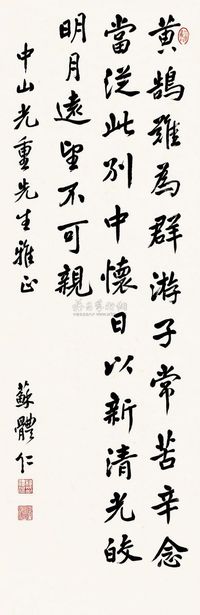 黄鹄難為群游子常苦辛念
當從此别中懷日以新清光皎
明月遠望不可親
中山光重先生雅正
蘇體仁